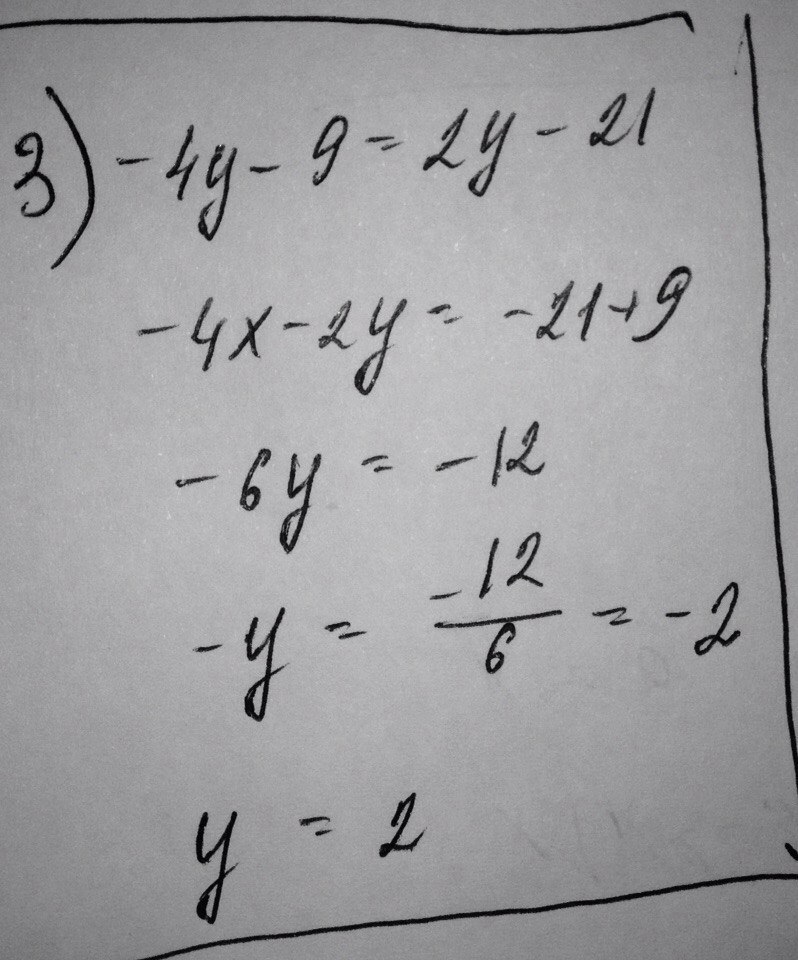 3) -4y - 9 = 2y - 21
-4x - 2y = -21 + 9
-6y = -12
-y = -12/6 = -2
y = 2